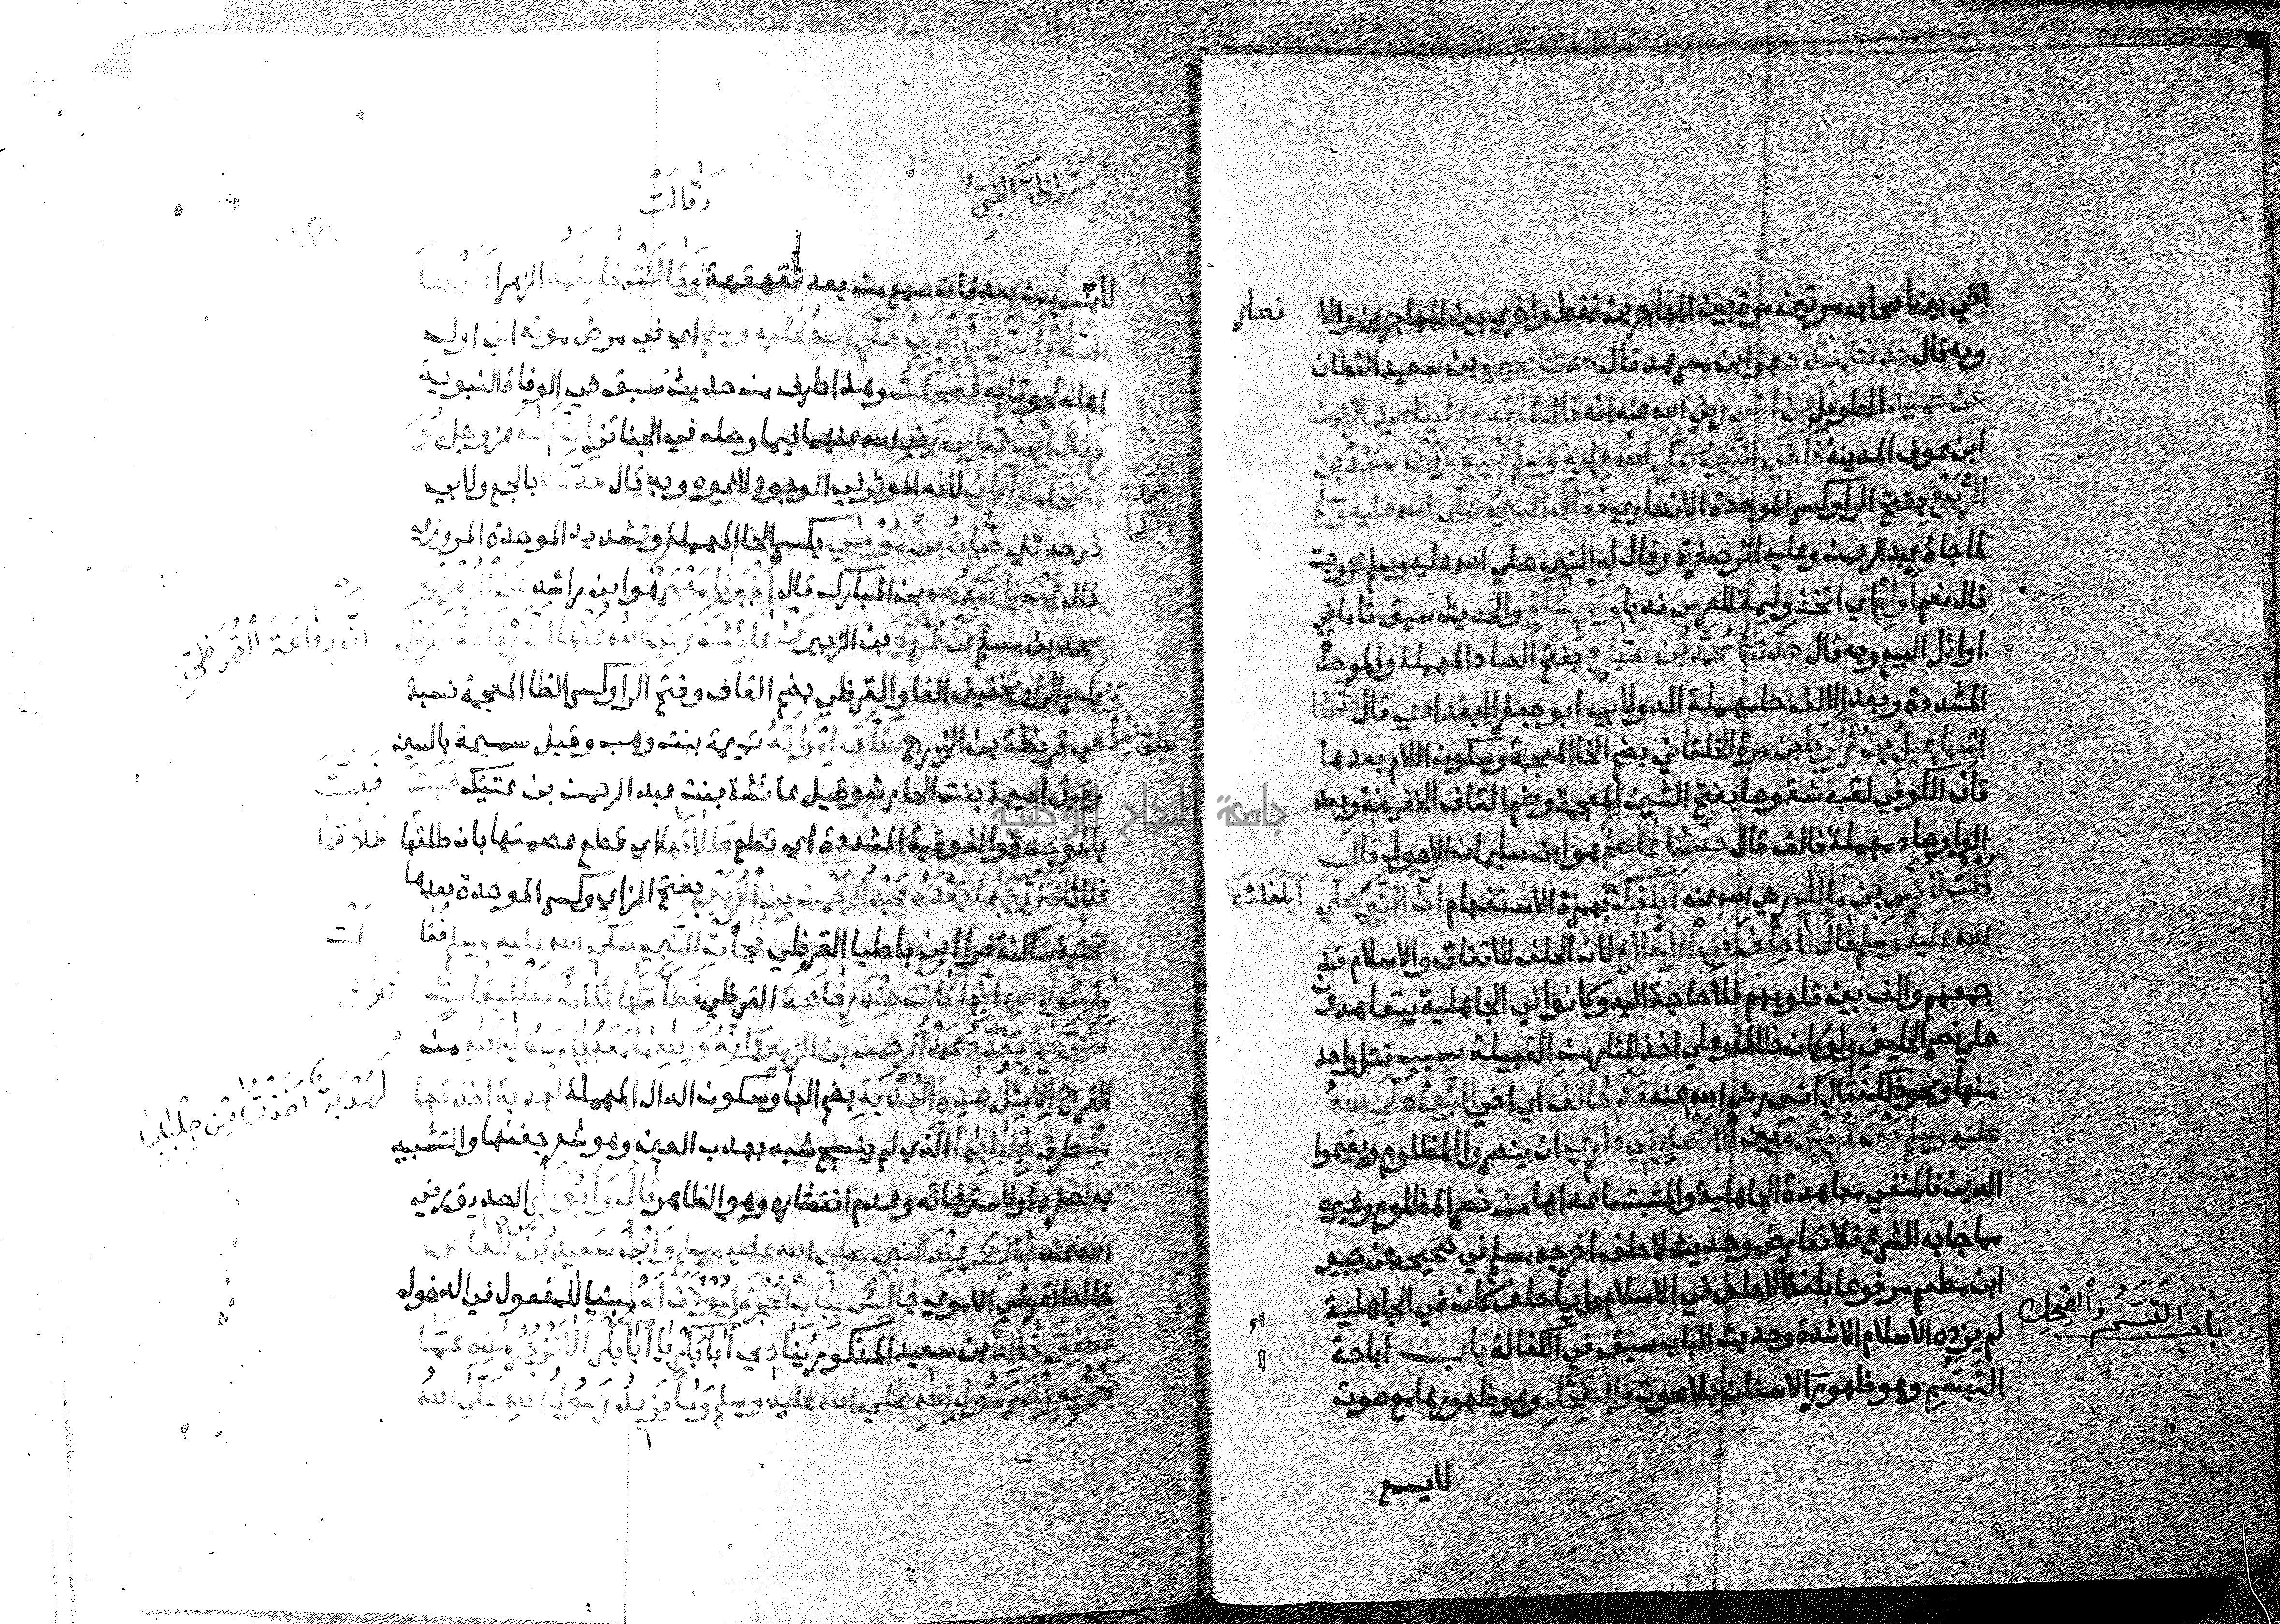 اخي بين اصحابه مرتين مرة بين المهاجرين فقط واخري بين المهاجرين والا نصار
وبه قال حدثنا مسدد هو ابن مسرهد قال حدثنا يحيي بن سعيد القطان
عن حميد الطويل عن انس رضي الله عنه انه قال لما قدم علينا عبد الرحمن
ابن عوف المدينة فَآخَي النَّبِيُّ صَلَّي اللهُ عليه وسلم بَيْنَهُ وَبَيْنَ سَعْدِ بْنِ
الرَّبِيْعِ بفتح الرا وكسر الموحدة الانصاري فَقَالَ النَّبِيُّ صلي الله عليه وسلم
لما جاءُ عبد الرحمن وعليه اثر صفرة وقال له النبي صلي الله عليه وسلم تزوجت
قال نعم اَوْلِمْ اي اتخذ وليمة للعرس ندبا وَلَوْ بِشَاةٍ والحديث سبق تاما في
اوائل البيع وبه قال حَدَّثَنَا مُحَمَّدُ بْنُ صَبَّاحٍ بفتح الصاد المهملة والموحدة
المشددة وبعد الالف حا مهملة الدولابي ابو جعفر البغدادي قال حدثنا
اسْمَاعِيلُ بْنُ زَكَرِيَّا ابن مرة الخلقاني بضم الخا المعجمة وسكون اللام بعدها
قاف الكوفي لقبه شقوصا بفتح الشين المعجمة وضم القاف الخفيفة وبعد
الواو صاد مهملة فالف قال حدثنا عَاصِمٌ هو ابن سليمان الاحول قال
قُلْتُ لِأَنَسِ بن مَالِكٍ رضي الله عنه أَبَلَغَكَ بهمزة الاستفهام انَّ النَّبِيَّ صَلَّي اَبَلَغَكَ
الله عليه وسلم قَالَ لَا حِلْفَ فِي الْاِسْلَامِ لان الحلف للاتفاق والاسلام قد
جمعهم والف بين قلوبهم فلا حاجة اليه وكانوا في الجاهلية يتعاهدون
علي نصر الحليف ولو كان ظالما وعلي اخذ الثار من القبيلة بسبب قتل واحد
منها ونحو ذلك فَقَالَ انس رضي الله عنه قَدْ حَالَفَ اي اخي النَّبِيُّ صَلَّي اللهُ
عليه وسلم بَيْنَ قُرَيْشٍ وَبَيْنَ الْاَنْصَارِ فِي دَارِي اي ان ينصروا المظلوم ويقيموا
الدين فالمنفي معاهدة الجاهلية والمثبت ما عداها من نصر المظلوم وغيره
مما جا به الشرع فلا تعارض وحديث لا حلف اخرجه مسلم في صحيحه عن جبير
ابن مطعم مرفوعا بلفظ لا حلف في الاسلام وايما حلف كان في الجاهلية
لم يزده الاسلام الا شدة وحديث الباب سبق في الكفالة باب اباحة
باب التَّبَسُّمِ وَالضَّحِكِ
التَّبَسُّمِ وهو ظهور الاسنان بلا صوت والضَّحِكِ وهو ظهورها مع صوت
لا يسمع
وَقَالَتْ
اَسَرَّ اِلَيَّ النَّبِيُّ
لا يسمع من بعد فان سمع من بعد فقهقهة وَقَالَتْ فَاطِمَةُ الزهرا عَلَيْهَا
السَّلَامُ اَسَرَّ اِلَيَّ النَّبِيُّ صَلَّي اللهُ عَليه وسلم اي في مرض موته اني اول
اهله لحوقا به فَضَحِكْتُ وهذا طرف من حديث سبق في الوفاة النبوية
وَقَالَ ابْنُ عَبَّاسٍ رضي الله عنهما فيما وصله في الجنائز اِنَّ اللهَ عز وجل هُوَ
اَضْحَكَ وَاَبْكَي لانه الموثر في الوجود لا غيره وبه قال حدثنا بالجمع ولابي
اَضْحَكَ وَاَبْكَي
ذر حدثني حِبَّانُ بْنُ مُوْسَي بكسر الحا المهملة وتشديد الموحدة المروزي
قال اَخْبَرَنَا عَبْدُ الله بن المبارك قال اَخْبَرَنَا مَعْمَرٌ هو ابن راشد عَنِ الزُّهْرِيِّ
محمد بن مسلم عَنْ عُرْوَةَ بن الزبير عَنْ عَائِشَةَ رَضِيَ اللهُ عَنْهَا اَنَّ رِفَاعَةَ الْقُرَظِيَّ
اَنَّ رِفَاعَةَ الْقُرَظِيَّ
بكسر الرا وتخفيف الفا والقرظي بضم القاف وفتح الرا وكسر الظا المعجمة نسبة
الي قريظة بن الخزرج طَلَّقَ امْرَاَتَهُ تميمة بنت وهب وقيل سميمة بالسين
طَلَّقَ امْرَاَتَهُ
وقيل اميمة بنت الحارث وقيل عائشة بنت عبد الرحمن بن عتيك فَبَتَّ فَبَتَّ
بالموحدة والفوقية المشددة اي قطع طَلَاقَهَا اي قطع عصمتها بان طلقها طَلَاقَهَا
ثلاثا فَتَزَوَّجَهَا بَعْدَهُ عَبْدُ الرَّحْمَنِ بْنُ الزَّبِيْرِ بفتح الزاي وكسر الموحدة بعدها
تحتية ساكنة فرا ابن باطيا القرظي فَجَاءَتِ النَّبِيَّ صَلَّي الله عليه وسلم فَقَا لَتْ
يَا رَسُولَ الله اِنَّهَا كَانَتْ عِنْدَ رِفَاعَةَ القرظي فَطَلَّقَهَا ثَلَاثَ تَطْلِيقَاتٍ ثلاث
فَتَزَوَّجَهَا بَعْدَهُ عَبْدُ الرَّحْمَنِ بْنُ الزبير وَاِنَّهُ وَاللهِ مَا مَعَهُ يَا رَسُولَ اللهِ من
الفرج اِلَّا مِثْلُ هَذِهِ الْهُدْبَةِ بضم الها وسكون الدال المهملة لِهُدْبَةٍ اخذتها
لِهُدْبَةٍ اَخَذَتْهَا مِنْ جِلْبَابِهَا
من طرف جِلْبَابِهَا الذي لم ينسج شبه بهدب العين وهو شعر جفنها والتشبيه
به لصغره او لاسترخائه وعدم انتشاره وهو الظاهر قَالَ وَاَبُو بَكْرٍ الصديق رضي
الله عنه جَالِسٌ عِنْدَ النبي صلي الله عليه وسلم وَابْنُ سَعِيدِ بْنِ الْعَاصِ
خالد القرشي الاموي جَالِسٌ بِبَابِ الْحُجْرَةِ لِيُؤْذَنَ لَهُ مبنيا للمفعول في الدخول
فَطَفِقَ خَالِدٌ بن سعيد المذكور يُنَادِي اَبَا بَكْرٍ يَا اَبَا بَكْرٍ اَلَا تَزْجُرُ هَذِهِ عَمَّا
تَجْهَرُ بِهِ عِنْدَ رَسُولِ اللهِ صلي الله عليه وسلم وَمَا يَزِيدُ رَسُولُ اللهِ صَلَّي اللهُ
جامعة النجاح الوطنية